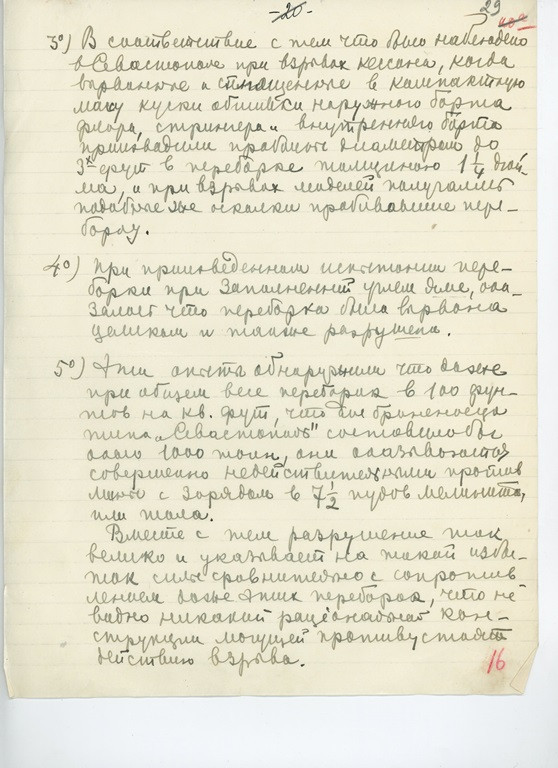 -20-
29
3º) В соответствие с тем что было наблюдено
в Севастополе при взрывах кессона, когда
вырванные и сплющенные в компактную
массу куски обшивки наружного борта
флора, стрингера и внутреннего борта
производили пробоины диаметром до
3х фут в переборке толщиною 1 1/4 дюй-
ма, и при взрывах моделей получались
подобные же осколки пробивавшие пере-
борку.
4º) При произведенном испытании пере-
борки при заполненной углем яме, ока-
залось что переборка была вырвана
целиком и также разрушена.
5º) Эти опыты обнаружили что даже
при общем весе переборок в 100 фун-
тов на кв. фут, что для броненосца
типа „Севастополь" составило бы
около 1000 тонн, они оказываются
совершенно недействительными против
мины с зарядом в 7 1/2 пудов мелинита,
или тола.
Вместе с тем разрушение так
велико и указывает на такой избы-
ток силы сравнительно с сопротив
лением даже этих переборок, что не
видно никакой раціональной кон-
струкции могущей противустоять
действию взрыва.
16